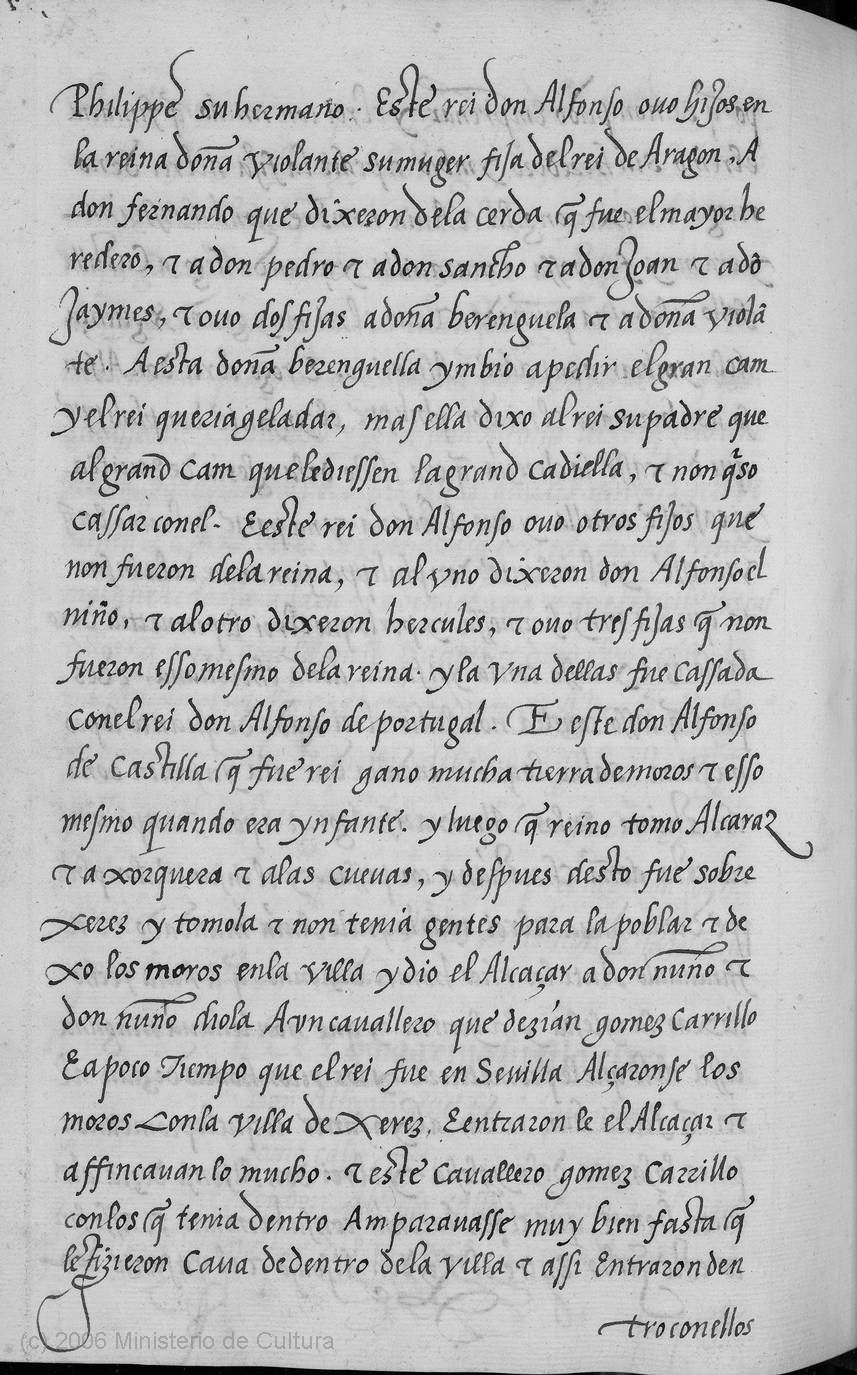 Philippe su hermano. Este rei don Alfonso ovo hijos en
la reina doña Violante su muger fija del rei de Aragon. A
don fernando que dixeron de la cerda q̃ fue el mayor he
redero, τ a don pedro τ a don sancho τ a don Joan τ a dõ
Jaymes, τ ovo dos fijas a doña berenguela τ a doña violã
te. A esta doña berenguella ymbio a pedir el gran cam
y el rei queria gela dar, mas ella dixo al rei su padre que
al grand cam que le diessen la grand cadiella, τ non q̃so
cassar con el. E este rei don Alfonso ovo otros fijos que
non fueron de la reina, τ al vno dixeron don Alfonso el
niño, τ al otro dixeron hercules, τ ovo tres fijas q̃ non
fueron esso mesmo de la reina. y la vna dellas fue cassada
con el rei don Alfonso de portugal. E este don Alfonso
de Castilla q̃ fue rei gano mucha tierra de moros τ esso
mesmo quando era ynfante. y luego q̃ reino tomo Alcaraz
τ a xorquera τ a las cuevas, y despues desto fue sobre
Xerez y tomola τ non tenia gentes para la poblar τ de
xo los moros en la villa y dio el Alcaçar a don nuño τ
don nuño diola A vn cavallero que dezian gomez Carrillo
E a poco Tiempo que el rei fue en Sevilla Alçaronse los
moros Con la villa de Xerez. E entraron le el Alcaçar τ
affincavan lo mucho. τ este Cavallero gomez Carrillo
con los q̃ tenia dentro Amparavasse muy bien fasta q̃
le fizieron Cava de dentro de la villa τ assi Entraron den
tro con ellos
(c) 2006 Ministerio de Cultura